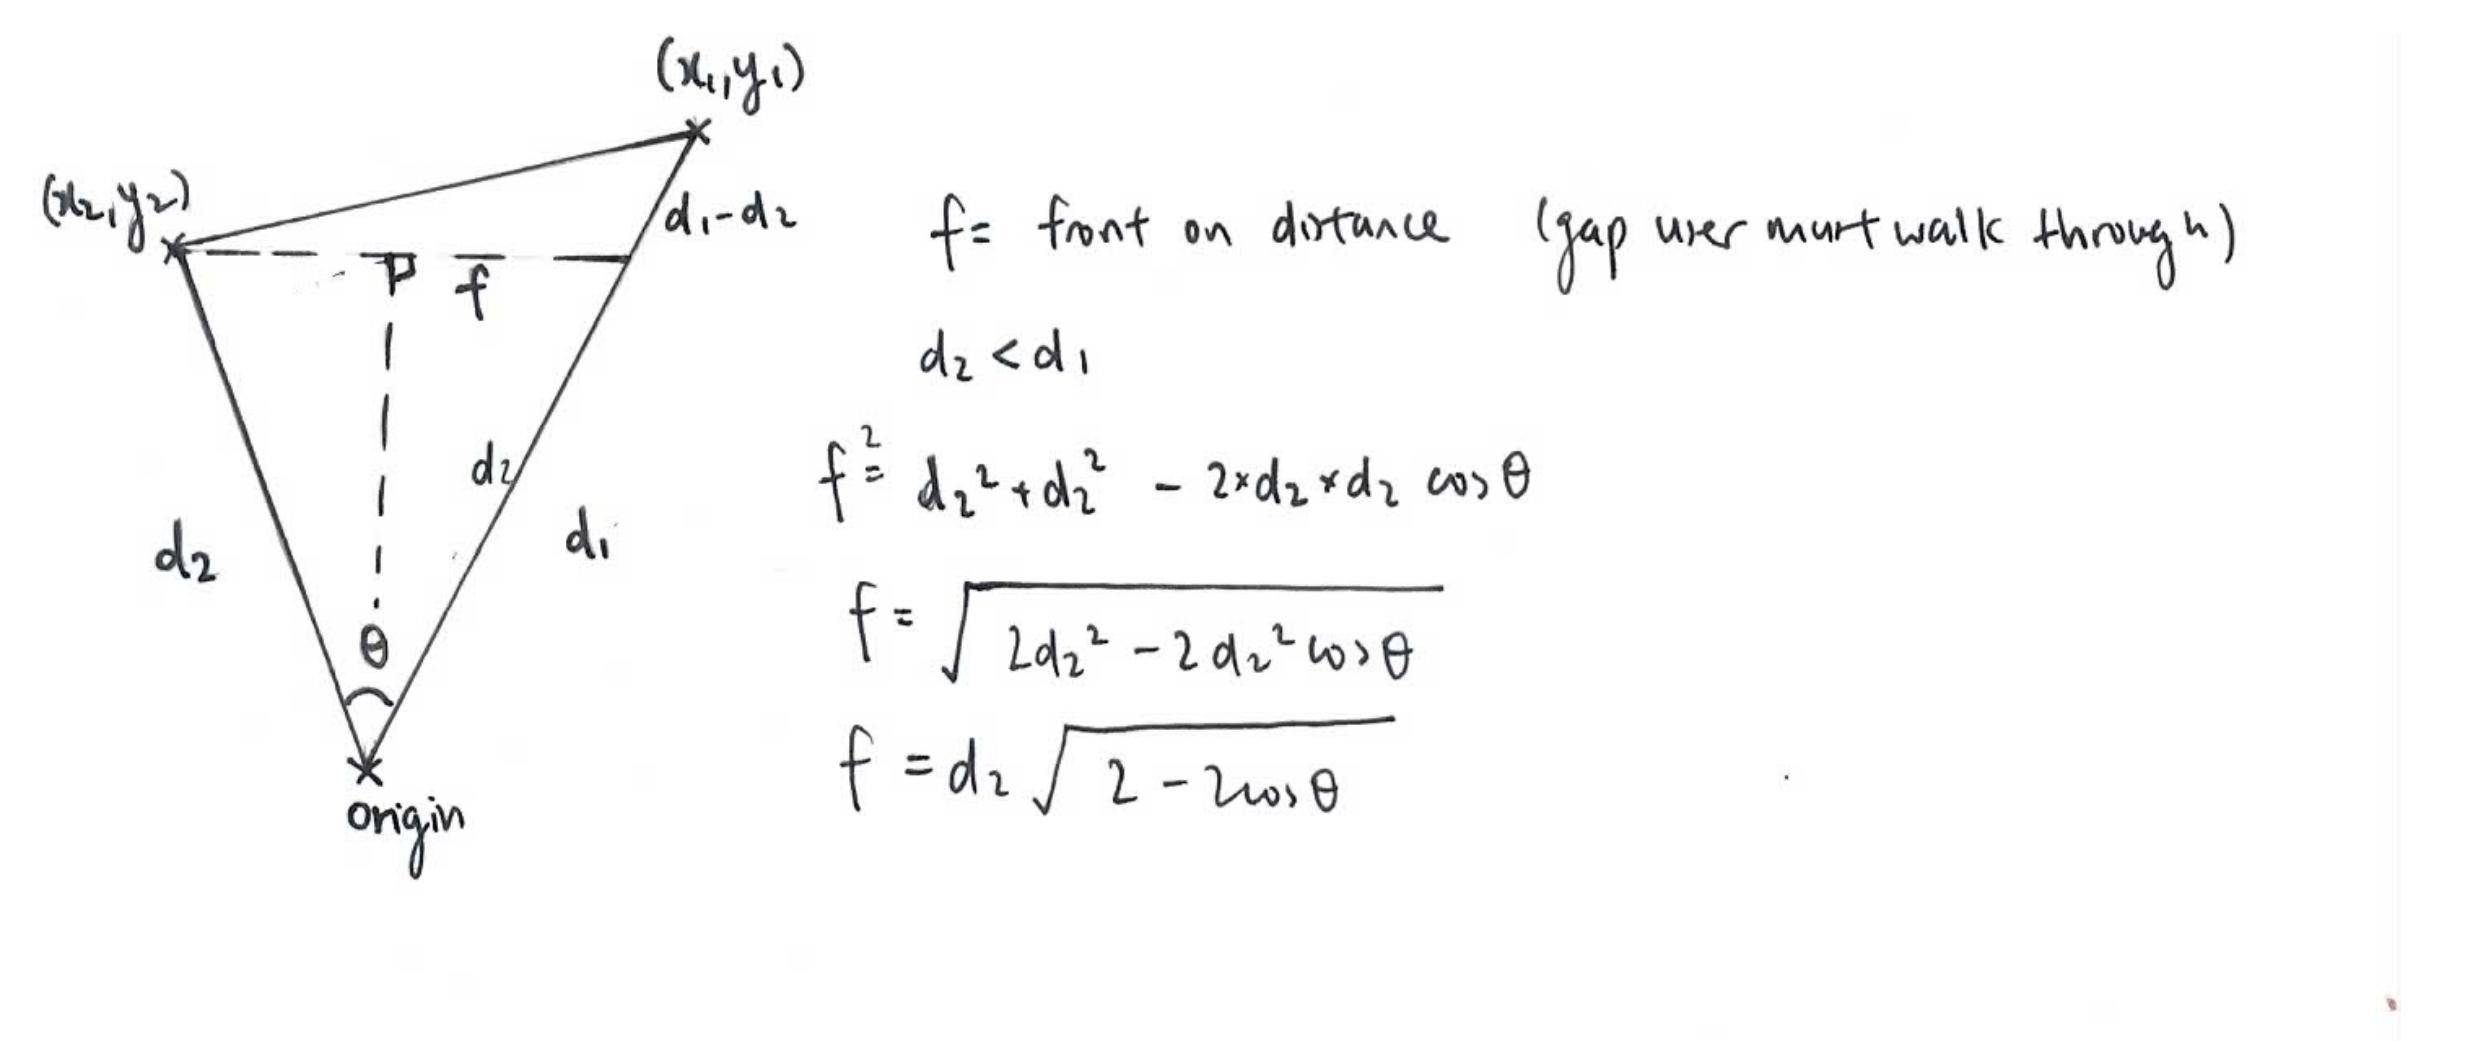 (x₁,y₁)
(x₂,y₂)
d₁-d₂
f
d₂
d₂
d₁
θ
origin
f= front on distance (gap user must walk through)
d₂ < d₁
f² = d₂² + d₂² - 2×d₂×d₂ cos θ
f = √2d₂² - 2d₂² cos θ
f = d₂ √2 - 2cos θ